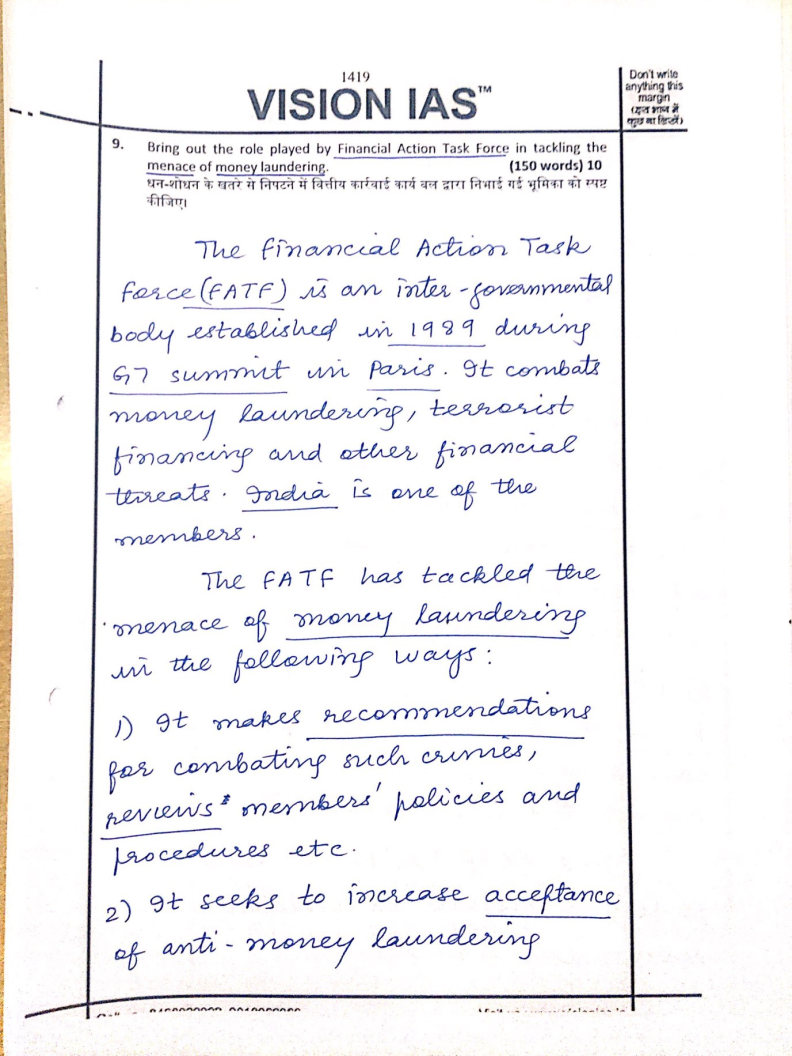 1419
VISION IAS™
Don't write
anything this
margin
(इस भाग में
कुछ ना लिखें)
9. Bring out the role played by Financial Action Task Force in tackling the
menace of money laundering. (150 words) 10
धन-शोधन के खतरे से निपटने में वित्तीय कार्रवाई कार्य बल द्वारा निभाई गई भूमिका को स्पष्ट
कीजिए।
The Financial Action Task
Force (FATF) is an inter-governmental
body established in 1989 during
G7 summit in Paris. It combats
money laundering, terrorist
financing and other financial
threats. India is one of the
members.
The FATF has tackled the
menace of money laundering
in the following ways:
1) It makes recommendations
for combating such crimes,
reviews members' policies and
procedures etc.
2) It seeks to increase acceptance
of anti-money laundering